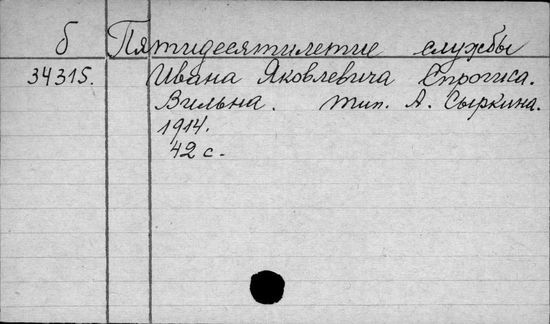 б Пятидесятилетие службы
34315. Ивана Яковлевича Спрогиса.
Вильна. тип. А. Сыркина.
1914.
42 с.